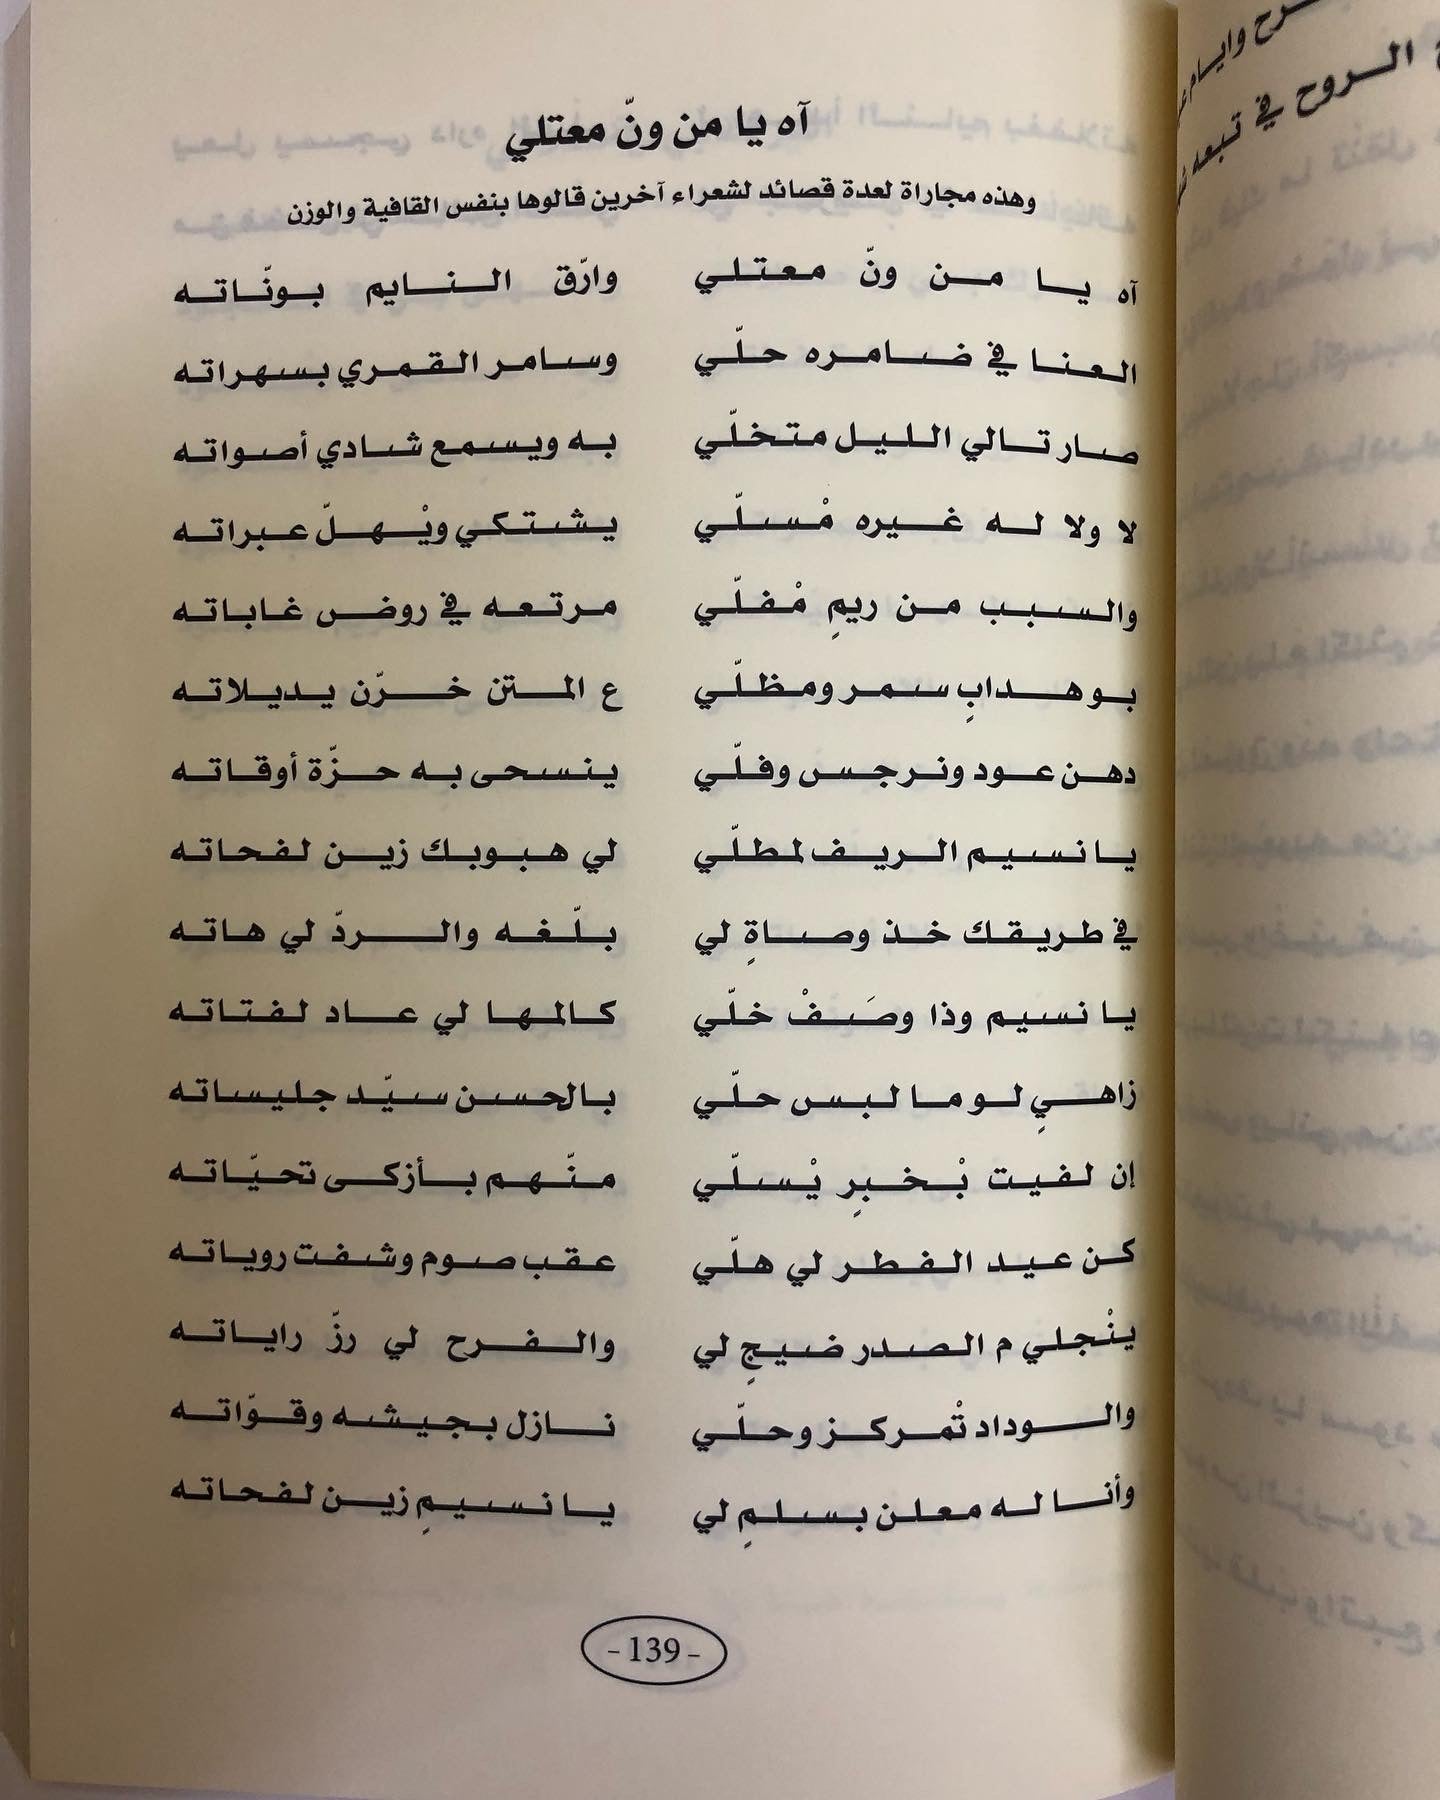 آه يا من ونّ معتلي
وهذه مجاراة لعدة قصائد لشعراء آخرين قالوها بنفس القافية والوزن
آه يا من ونّ معتلي وارّق النايم بونّاته
العنا في ضامره حلّي وسامر القمري بسهراته
صار تالي الليل متخلّي به ويسمع شادي أصواته
لا ولا له غيره مْسلّي يشتكي ويْهلّ عبراته
والسبب من ريمٍ مْفلّي مرتعه في روض غاباته
بو هدابٍ سمر ومظلّي ع المتن خرّن يديلاته
دهن عود ونرجس وفلّي ينسحى به حزّة أوقاته
يا نسيم الريف لمطلّي لي هبوبك زين لفحاته
في طريقك خذ وصاةٍ لي بلّغه والردّ لي هاته
يا نسيم وذا وصَفْ خلّي كالمها لي عاد لفتاته
زاهيٍ لو ما لبس حلّي بالحسن سيّد جليساته
إن لفيت بْخبرٍ يْسلّي منّهم بأزكى تحيّاته
كن عيد الفطر لي هلّي عقب صوم وشفت روياته
ينْجلي م الصدر ضيجٍ لي والفرح لي رزّ راياته
والوداد تْمركز وحلّي نازل بجيشه وقوّاته
وأنا له معلن بسلمٍ لي يا نسيمٍ زين لفحاته
- 139 -
الروح في تبعه